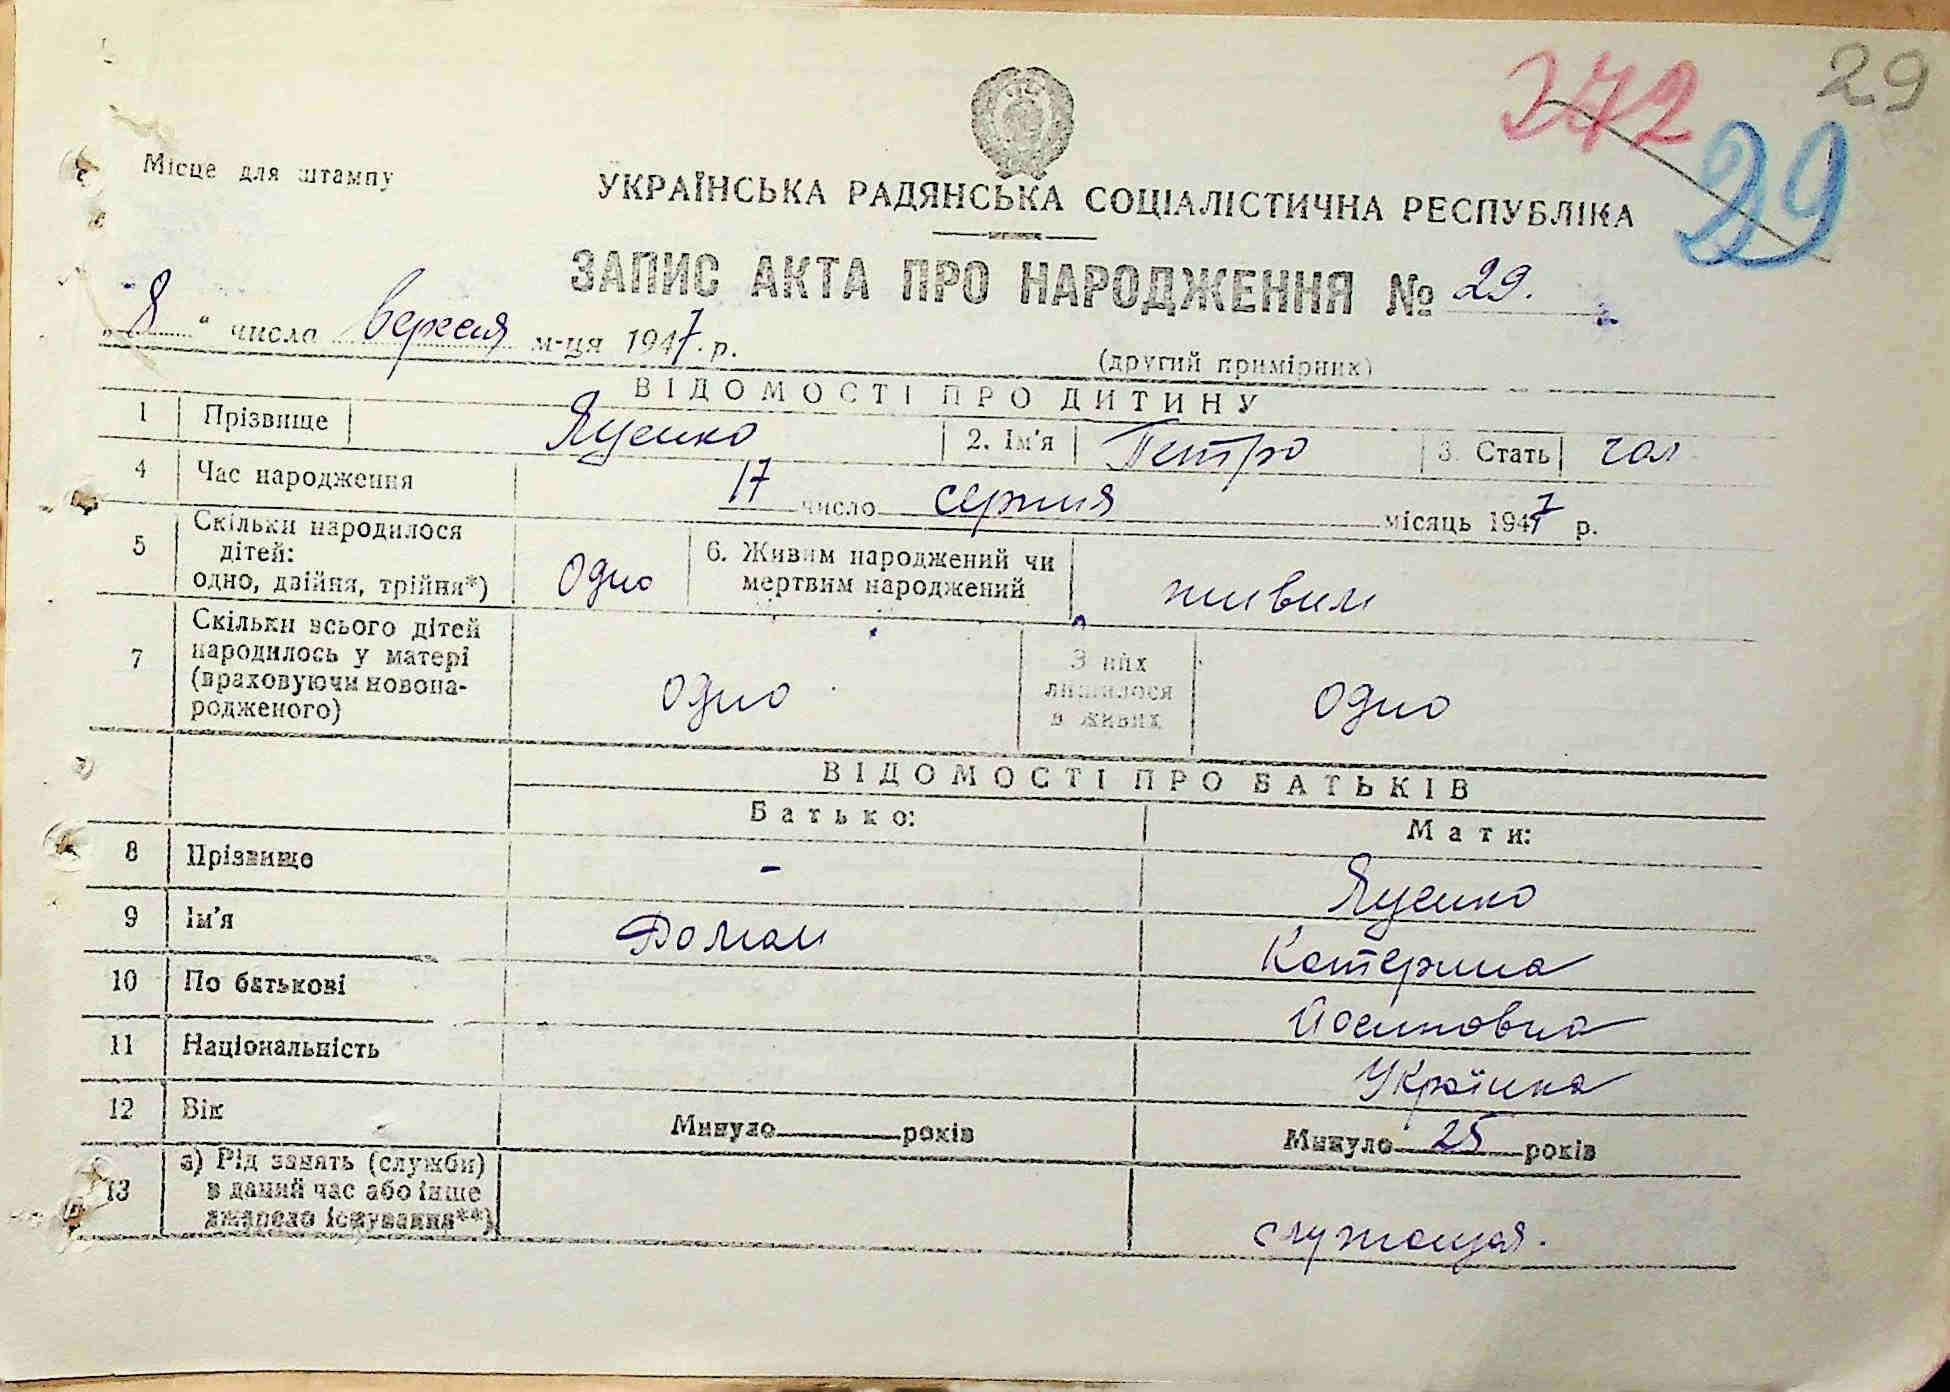 272 29
29
Місце для штампу
УКРАЇНСЬКА РАДЯНСЬКА СОЦІАЛІСТИЧНА РЕСПУБЛІКА
ЗАПИС АКТА ПРО НАРОДЖЕННЯ № 29.
„8" числа вересня м-ця 1947 р.
(другий примірник)
ВІДОМОСТІ ПРО ДИТИНУ
1 Прізвище Яценко 2. Ім'я Петро 3. Стать чол
4 Час народження 17 число серпня місяць 1947 р.
5 Скільки народилося
дітей:
одно, двійня, трійня*) Одно
6. Живим народжений чи
мертвим народжений живим
7 Скільки всього дітей
народилось у матері
(враховуючи новона-
родженого) одно
З них
лишилося
в живих одно
ВІДОМОСТІ ПРО БАТЬКІВ
Батько: Мати:
8 Прізвище - Яценко
9 Ім'я Катерина
10 По батькові Йосиповна
11 Національність Українка
12 Вік Минуло років Минуло 25 років
13 а) Рід занять (служби)
в даний час або інше
джерело існування**) служащая.